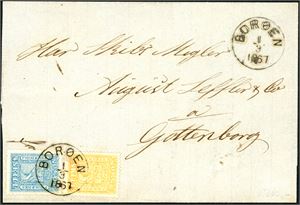 BORØEN
1
3
1867
Herr Skibs Mægler
August Leffler & Co
a
Gottenborg
BORØEN
1
3
1867